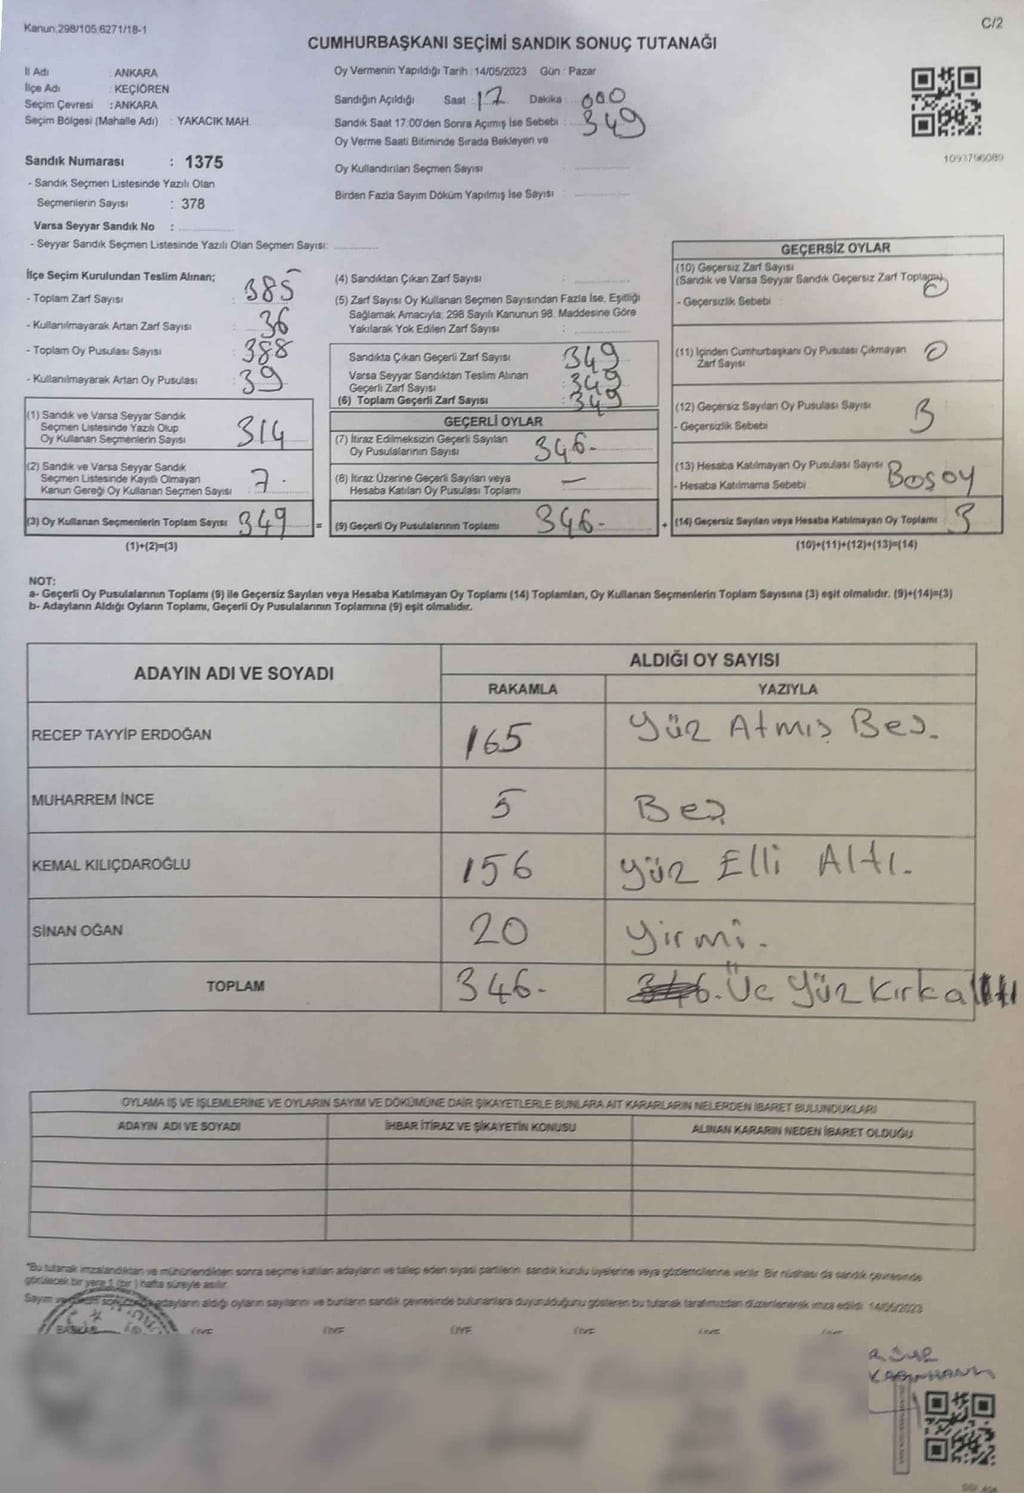 Kanun:298/105;6271/18-1
C/2
CUMHURBAŞKANI SEÇİMİ SANDIK SONUÇ TUTANAĞI
İl Adı : ANKARA
İlçe Adı : KEÇİÖREN
Seçim Çevresi : ANKARA
Seçim Bölgesi (Mahalle Adı) : YAKACIK MAH.
Sandık Numarası : 1375
- Sandık Seçmen Listesinde Yazılı Olan
Seçmenlerin Sayısı : 378
Varsa Seyyar Sandık No :
- Seyyar Sandık Seçmen Listesinde Yazılı Olan Seçmen Sayısı:
Oy Vermenin Yapıldığı Tarih : 14/05/2023 Gün : Pazar
Sandığın Açıldığı Saat : 17 Dakika : 000
Sandık Saat 17:00'den Sonra Açımış İse Sebebi : 349
Oy Verme Saati Bitiminde Sırada Bekleyen ve
Oy Kullandırılan Seçmen Sayısı :
Birden Fazla Sayım Döküm Yapılmış İse Sayısı :
1093796089
İlçe Seçim Kurulundan Teslim Alınan;
- Toplam Zarf Sayısı : 385
- Kullanılmayarak Artan Zarf Sayısı : 36
- Toplam Oy Pusulası Sayısı : 388
- Kullanılmayarak Artan Oy Pusulası : 39
(1) Sandık ve Varsa Seyyar Sandık
Seçmen Listesinde Yazılı Olup
Oy Kullanan Seçmenlerin Sayısı 314
(2) Sandık ve Varsa Seyyar Sandık
Seçmen Listesinde Kayıtlı Olmayan
Kanun Gereği Oy Kullanan Seçmen Sayısı : 7.
(3) Oy Kullanan Seçmenlerin Toplam Sayısı 349 =
(1)+(2)=(3)
(4) Sandıktan Çıkan Zarf Sayısı :
(5) Zarf Sayısı Oy Kullanan Seçmen Sayısından Fazla İse, Eşitliği
Sağlamak Amacıyla; 298 Sayılı Kanunun 98. Maddesine Göre
Yakılarak Yok Edilen Zarf Sayısı :
Sandıkta Çıkan Geçerli Zarf Sayısı : 349
Varsa Seyyar Sandıktan Teslim Alınan
Geçerli Zarf Sayısı : 349
(6) Toplam Geçerli Zarf Sayısı : 349
GEÇERLİ OYLAR
(7) İtiraz Edilmeksizin Geçerli Sayılan
Oy Pusulalarının Sayısı 346-
(8) İtiraz Üzerine Geçerli Sayılan veya
Hesaba Katılan Oy Pusulası Toplamı —
(9) Geçerli Oy Pusulalarının Toplamı 346- +
GEÇERSİZ OYLAR
(10) Geçersiz Zarf Sayısı
(Sandık ve Varsa Seyyar Sandık Geçersiz Zarf Toplamı) 0
- Geçersizlik Sebebi :
(11) İçinden Cumhurbaşkanı Oy Pusulası Çıkmayan
Zarf Sayısı 0
(12) Geçersiz Sayılan Oy Pusulası Sayısı : 3
- Geçersizlik Sebebi
(13) Hesaba Katılmayan Oy Pusulası Sayısı :
- Hesaba Katılmama Sebebi : Boşoy
(14) Geçersiz Sayılan veya Hesaba Katılmayan Oy Toplamı 3
(10)+(11)+(12)+(13)=(14)
NOT:
a- Geçerli Oy Pusulalarının Toplamı (9) ile Geçersiz Sayılan veya Hesaba Katılmayan Oy Toplamı (14) Toplamları, Oy Kullanan Seçmenlerin Toplam Sayısına (3) eşit olmalıdır. (9)+(14)=(3)
b- Adayların Aldığı Oyların Toplamı, Geçerli Oy Pusulalarının Toplamına (9) eşit olmalıdır.
ADAYIN ADI VE SOYADI
ALDIĞI OY SAYISI
RAKAMLA YAZIYLA
RECEP TAYYİP ERDOĞAN 165 Yüz Atmış Beş.
MUHARREM İNCE 5 Beş
KEMAL KILIÇDAROĞLU 156 Yüz Elli Altı.
SİNAN OĞAN 20 Yirmi.
TOPLAM 346- 346. Üç Yüz Kırk altı
OYLAMA İŞ VE İŞLEMLERİNE VE OYLARIN SAYIM VE DÖKÜMÜNE DAİR ŞİKAYETLERLE BUNLARA AİT KARARLARIN NELERDEN İBARET BULUNDUKLARI
ADAYIN ADI VE SOYADI İHBAR İTİRAZ VE ŞİKAYETİN KONUSU ALINAN KARARIN NEDEN İBARET OLDUĞU
*Bu tutanak imzalandıktan ve mühürlendikten sonra seçime katılan adayların ve talep eden siyasi partilerin, sandık kurulu üyelerine veya gözlemcilerine verilir. Bir nüshası da sandık çevresinde
görülecek bir yere 1 (bir ) hafta süreyle asılır.
Sayım ve döküm sonucunda adayların aldığı oyların sayılarını ve bunların sandık çevresinde bulunanlara duyurulduğunu gösteren bu tutanak tarafımızdan düzenlenerek imza edildi. 14/05/2023
BAŞKAN ÜYE ÜYE ÜYE ÜYE ÜYE ÜYE